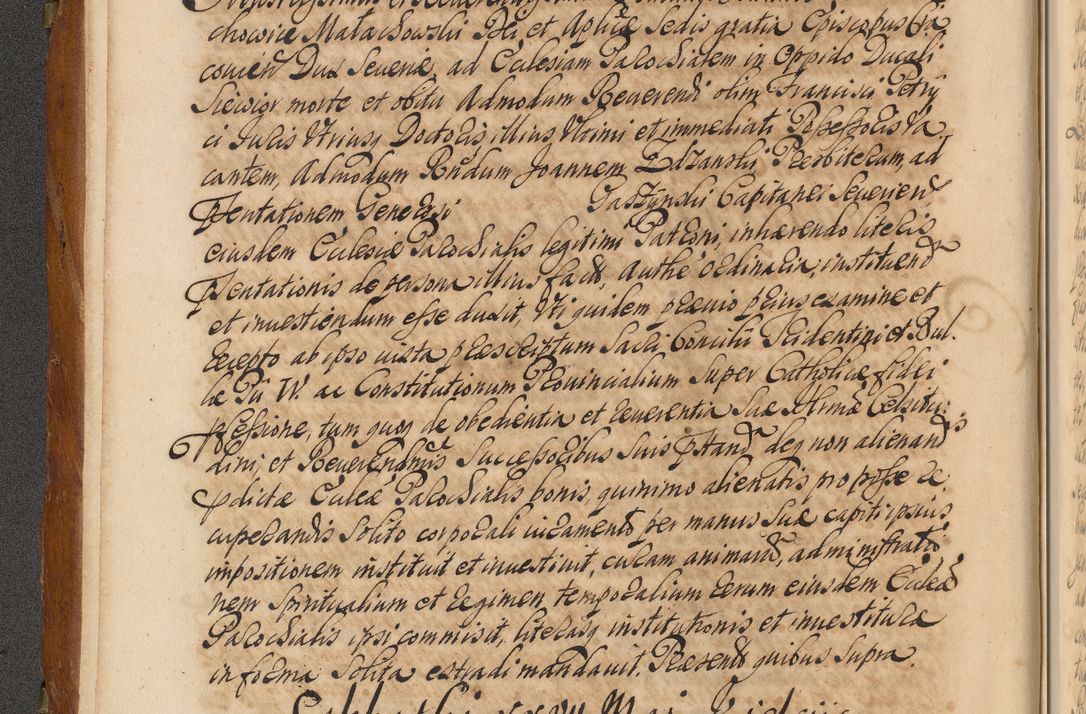 chowice Małachowski Dei et Aplicæ Sedis gratia Episcopus Cra
covien Dux Severiæ, ad Ecclesiam Parochialem in Oppido Ducali
Siewior morte et obitu Admodum Reverendi olim Francisci Petry
ci Iuris Utriusq Doctoris illius Ultimi et immediati Possessoris va
cantem, Admodum Rndum Joannem Presbiterum, ad
pntationem Generosi Paszynskii Capitanei Severien
eiusdem Ecclesiæ Parochialis legitimi Patroni, inhærendo literis
pntationis de persona illius factis, Authe ordinaria, instituend
et investiendum esse duxit, Uti quidem prævio prius examine et
recepto ab ipso iuxta præscriptum Sacri Concilii Tridentini et Bul
læ Pii IV. ac Constitutionum Provincialium Super Catholicæ fidei
pfessione, tum quoq de obedientia et reverentia Suæ Illrmæ Celsitu
dini, et Reverendmis Successoribus Suis pstand deq non alienandis
pdictæ Ecclæ Parochialis bonis, quinimo alienatis pro posse re
cuperandis Solito corporali iuramento per manus Suæ capiti ipsius
impositionem instituit et investivit, curam animarum, administratio
nem Spiritualium et regimen temporalium rerum eiusdem Ecclæ
Parochialis ipsi commisit, literasq institutionis et investitura
in forma Solita extradi mandavit. Præsentib quibus Supra.